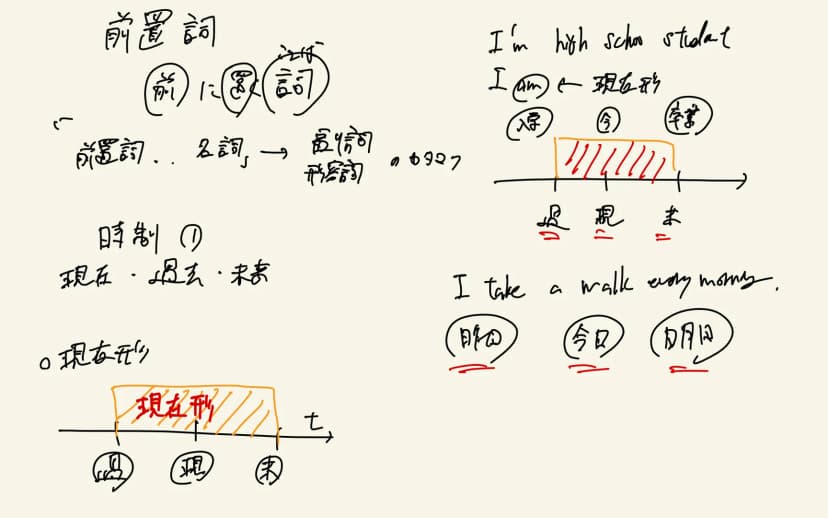 前置詞
前に置く詞
ことば
前置詞.. 名詞 → 副詞
形容詞 のカタマリ
時制①
現在・過去・未来
○現在形
現在形
t
過 現 未
I'm high schoo student
I am ← 現在形
入学 今 卒業
過 現 未
I take a walk every morning.
昨日 今日 明日